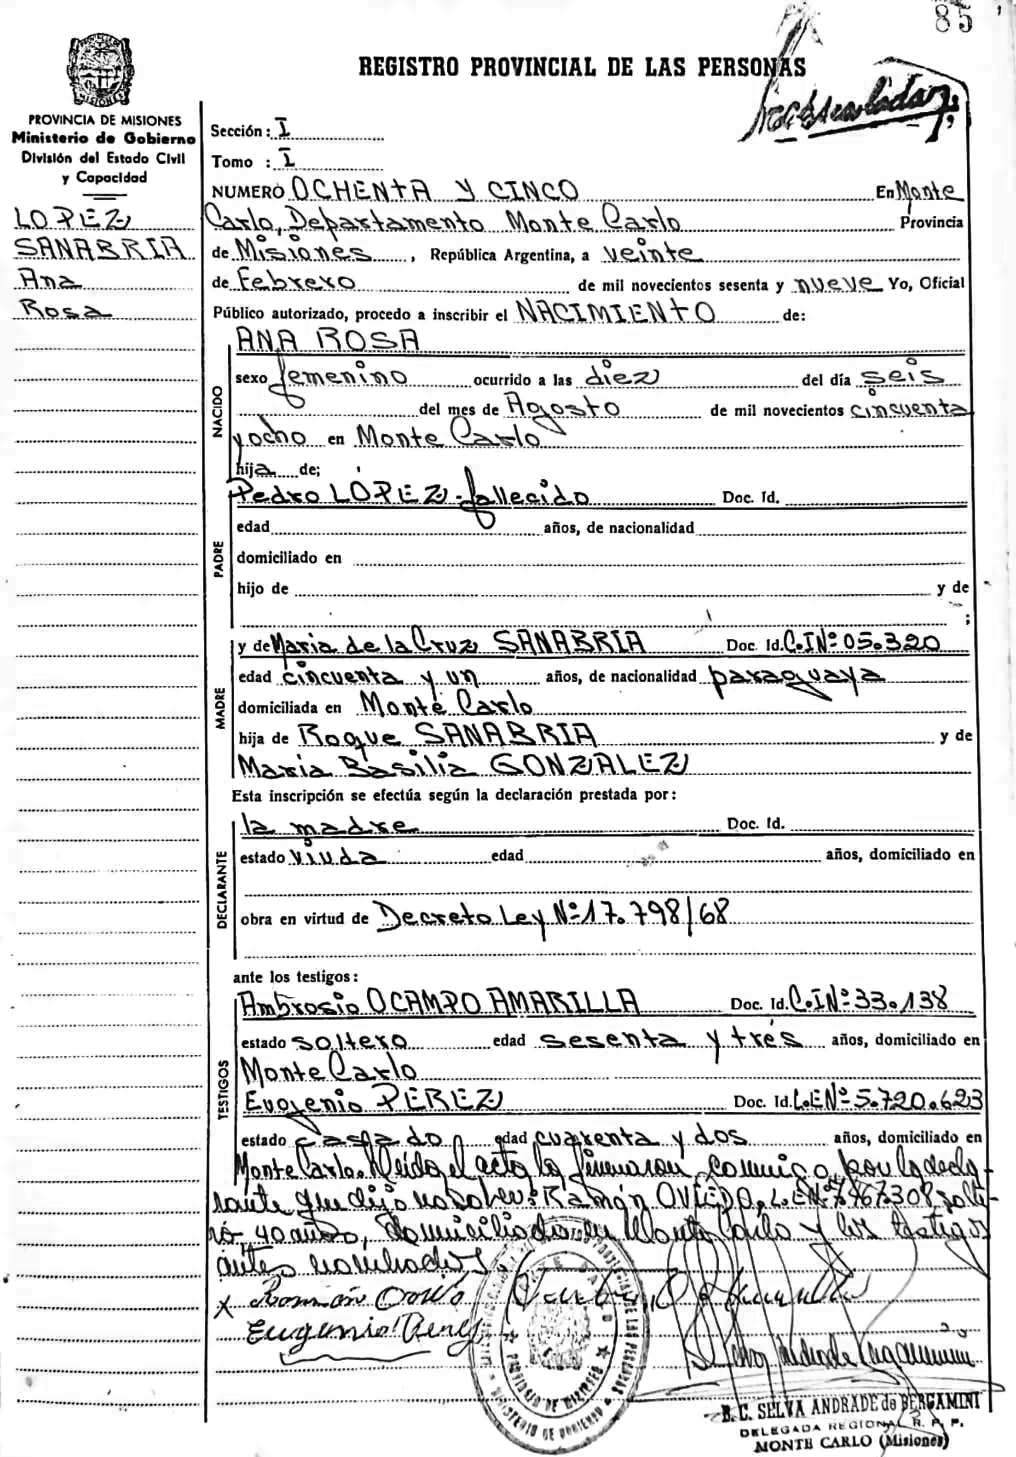 85
REGISTRO PROVINCIAL DE LAS PERSONAS
PROVINCIA DE MISIONES
Ministerio de Gobierno
División del Estado Civil
y Capacidad
LOPEZ
SANABRIA
Ana
Rosa
Sección: I
Tomo : I
NUMERO OCHENTA Y CINCO En Monte
Carlo, Departamento Monte Carlo Provincia
de Misiones, República Argentina, a veinte
de Febrero de mil novecientos sesenta y nueve Yo, Oficial
Público autorizado, procedo a inscribir el NACIMIENTO de:
NACIDO
ANA ROSA
sexo femenino ocurrido a las diez del día seis
del mes de Agosto de mil novecientos cincuenta
y ocho en Monte Carlo
hija de;
PADRE
Pedro LÓPEZ - fallecido Doc. Id.
edad años, de nacionalidad
domiciliado en
hijo de y de
;
MADRE
y de Maria de la Cruz SANABRIA Doc. Id. C.I.Nº 05.320
edad cincuenta y un años, de nacionalidad paraguaya
domiciliada en Monte Carlo
hija de Roque SANABRIA y de
Maria Basilia GONZALEZ
Esta inscripción se efectúa según la declaración prestada por:
DECLARANTE
la madre Doc. Id.
estado viuda edad años, domiciliado en
obra en virtud de Decreto Ley Nº 17.798/68
ante los testigos:
TESTIGOS
Ambrosio OCAMPO AMARILLA Doc. Id. C.I.Nº 33.138
estado soltero edad sesenta y tres años, domiciliado en
Monte Carlo
Eugenio PÉREZ Doc. Id. L.E.Nº 5.720.623
estado casado edad cuarenta y dos años, domiciliado en
Monte Carlo. Leída el acta la firmaron conmigo, por la decla-
rante que dijo no saber: Ramón OVIEDO, L.E.Nº 7.467.308 solte-
ro 40 años, domiciliado en Monte Carlo y los testigos
antes nombrados
x Ramón Ovi
Eugenio Perez
PROVINCIA DE MISIONES
MINISTERIO DE GOBIERNO
B. C. SELVA ANDRADE de BERGAMINI
DELEGADA REGIONAL R. P. P.
MONTE CARLO (Misiones)